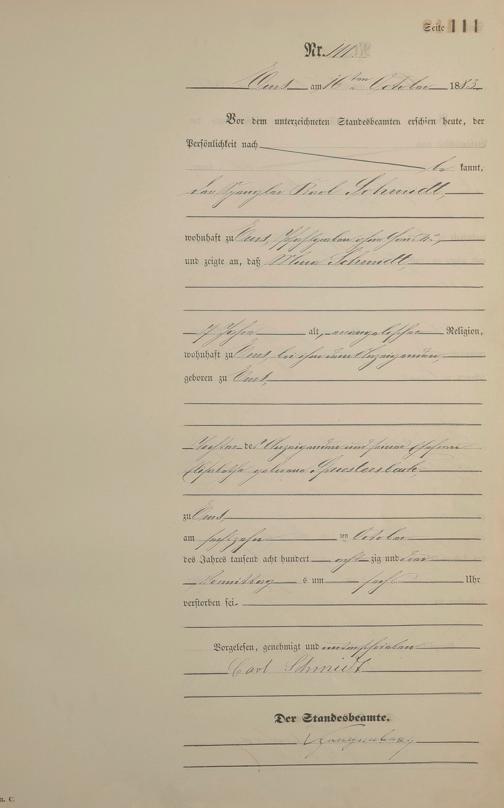 Seite 111
Nr. 111
Ems am 16ten October 1883
Vor dem unterzeichneten Standesbeamten erschien heute, der
Persönlichkeit nach
be kannt,
der Spengler Karl Schmidt,
wohnhaft zu Ems,
und zeigte an, daß Schmidt,
alt, evangelischer Religion,
wohnhaft zu Ems, bei ihm dem Anzeigenden,
geboren zu Ems,
Tochter des Anzeigenden und seiner Ehefrau
geborene
zu Ems,
am sechszehn ten October
des Jahres tausend acht hundert acht zig und drei
Vormittags um sechs Uhr
verstorben sei.
Vorgelesen, genehmigt und unterschrieben
Carl Schmidt
Der Standesbeamte.
n. C.